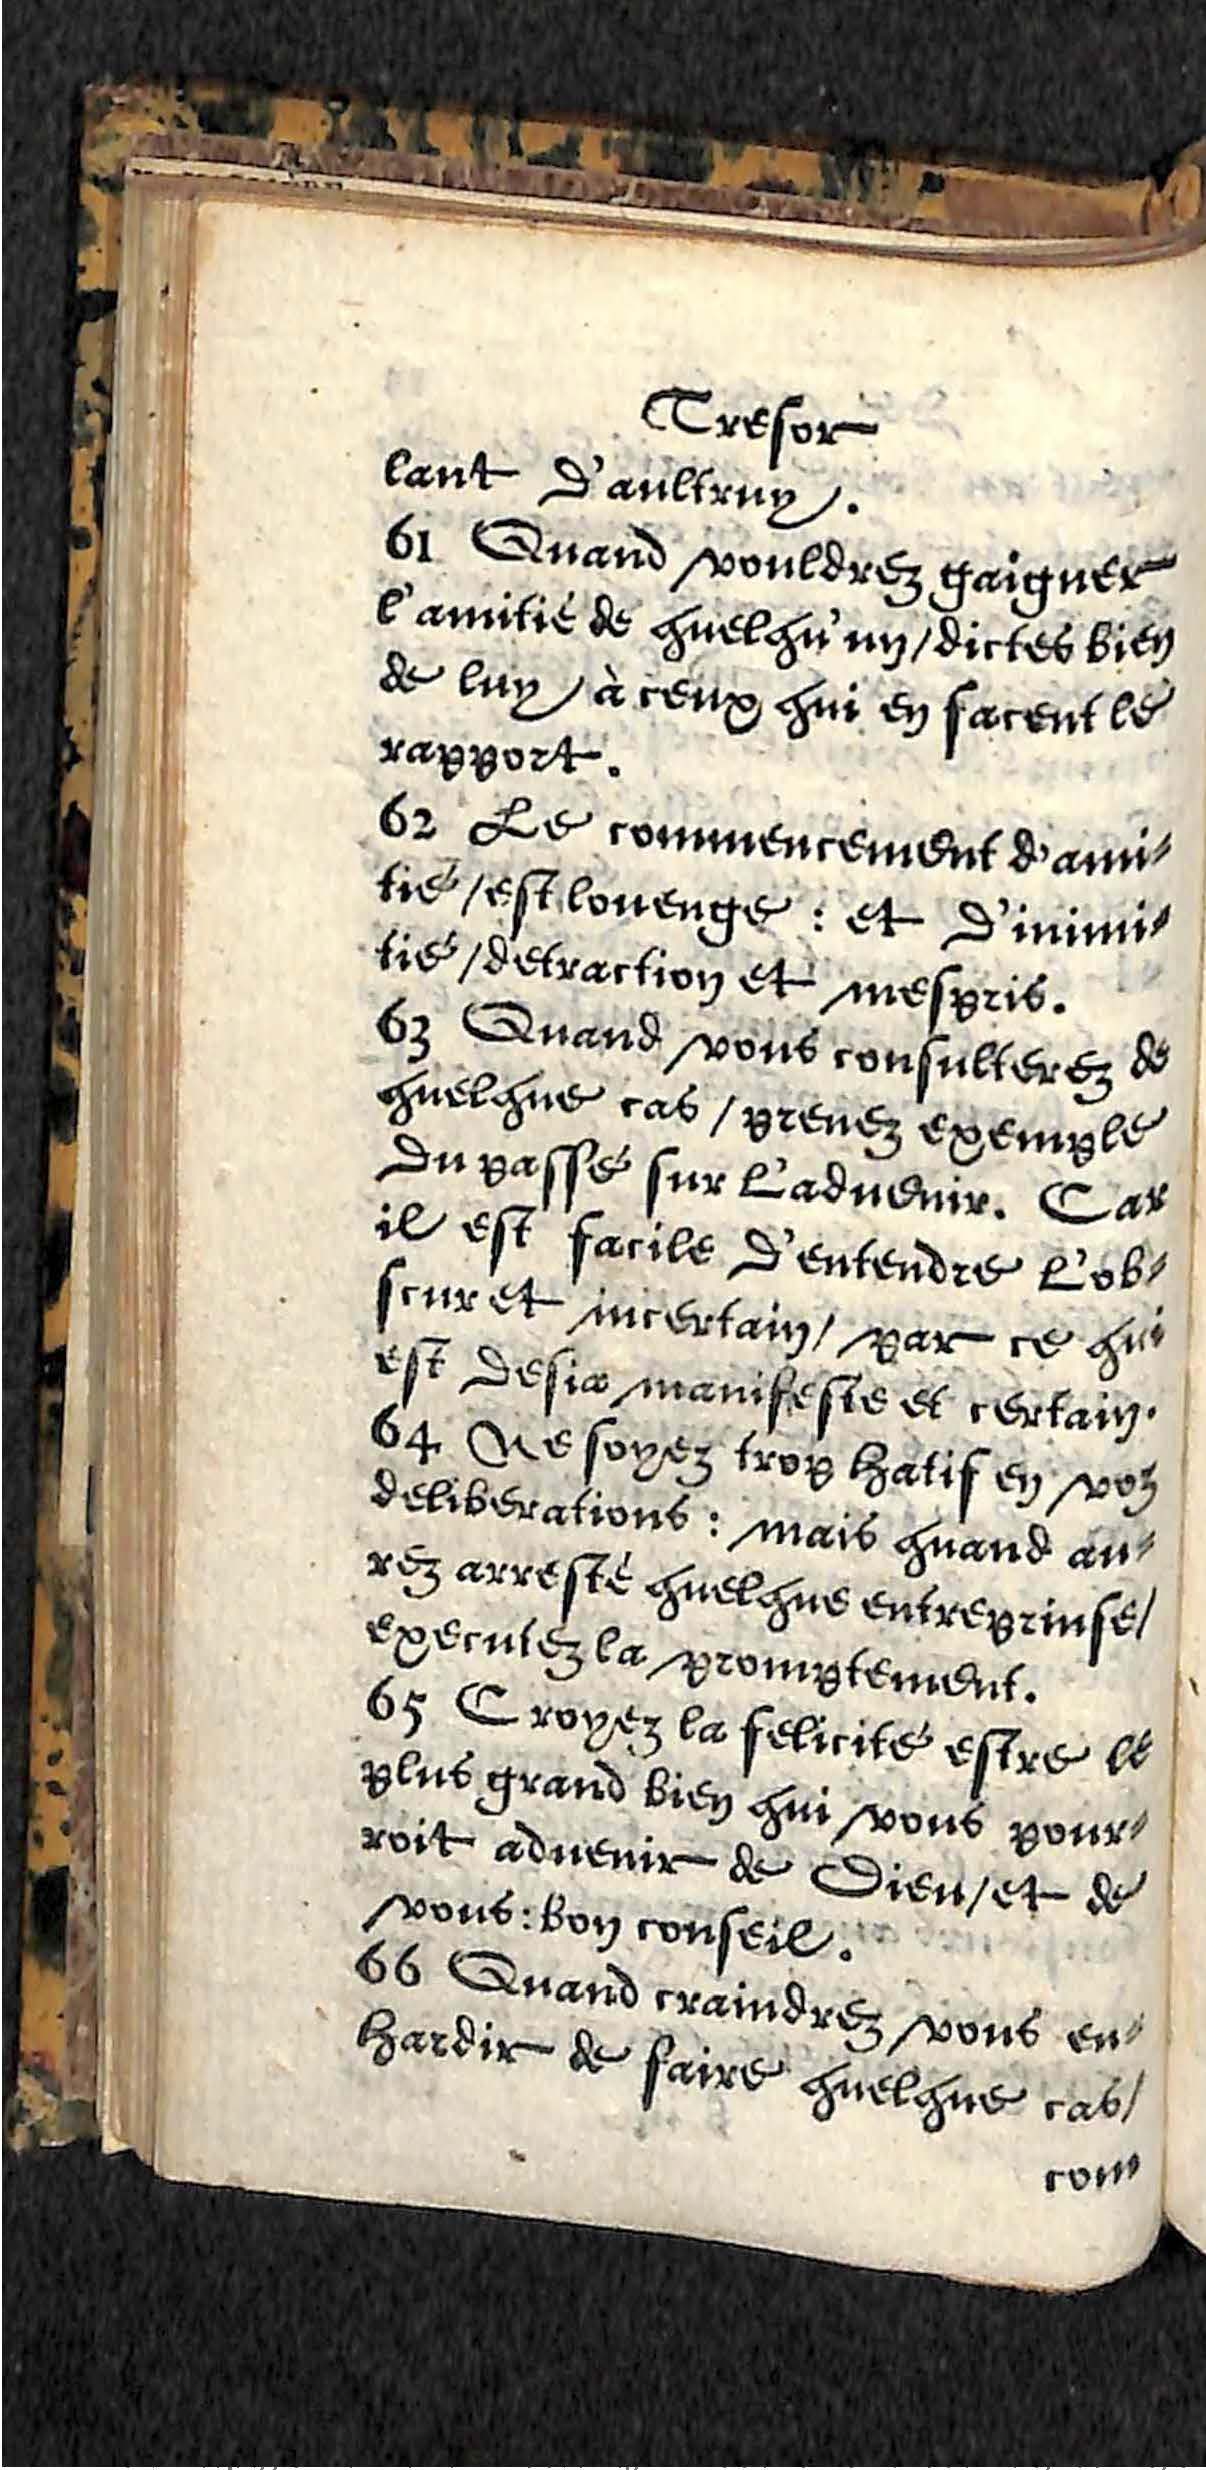 Tresor
lant d'aultruy.
61 Quand vouldrez gaigner
l'amitié de quelqu'un/dictes bien
de luy à ceux qui en facent le
rapport.
62 Le commencement d'ami-
tié/est louenge : et d'inimi-
tié/detraction et mespris.
63 Quand vous consulterez de
quelque cas/prenez exemple
du passé sur l'aduenir. Car
il est facile d'entendre l'ob-
scur et incertain/ par ce qui
est desia manifeste et certain.
64 Ne soyez trop hatif en voz
deliberations : mais quand au-
rez arresté quelque entreprinse/
executez la promptement.
65 Croyez la felicité estre le
plus grand bien qui vous pour-
roit aduenir de Dieu/et de
vous : bon conseil.
66 Quand craindrez vous en-
hardir de faire quelque cas/
com